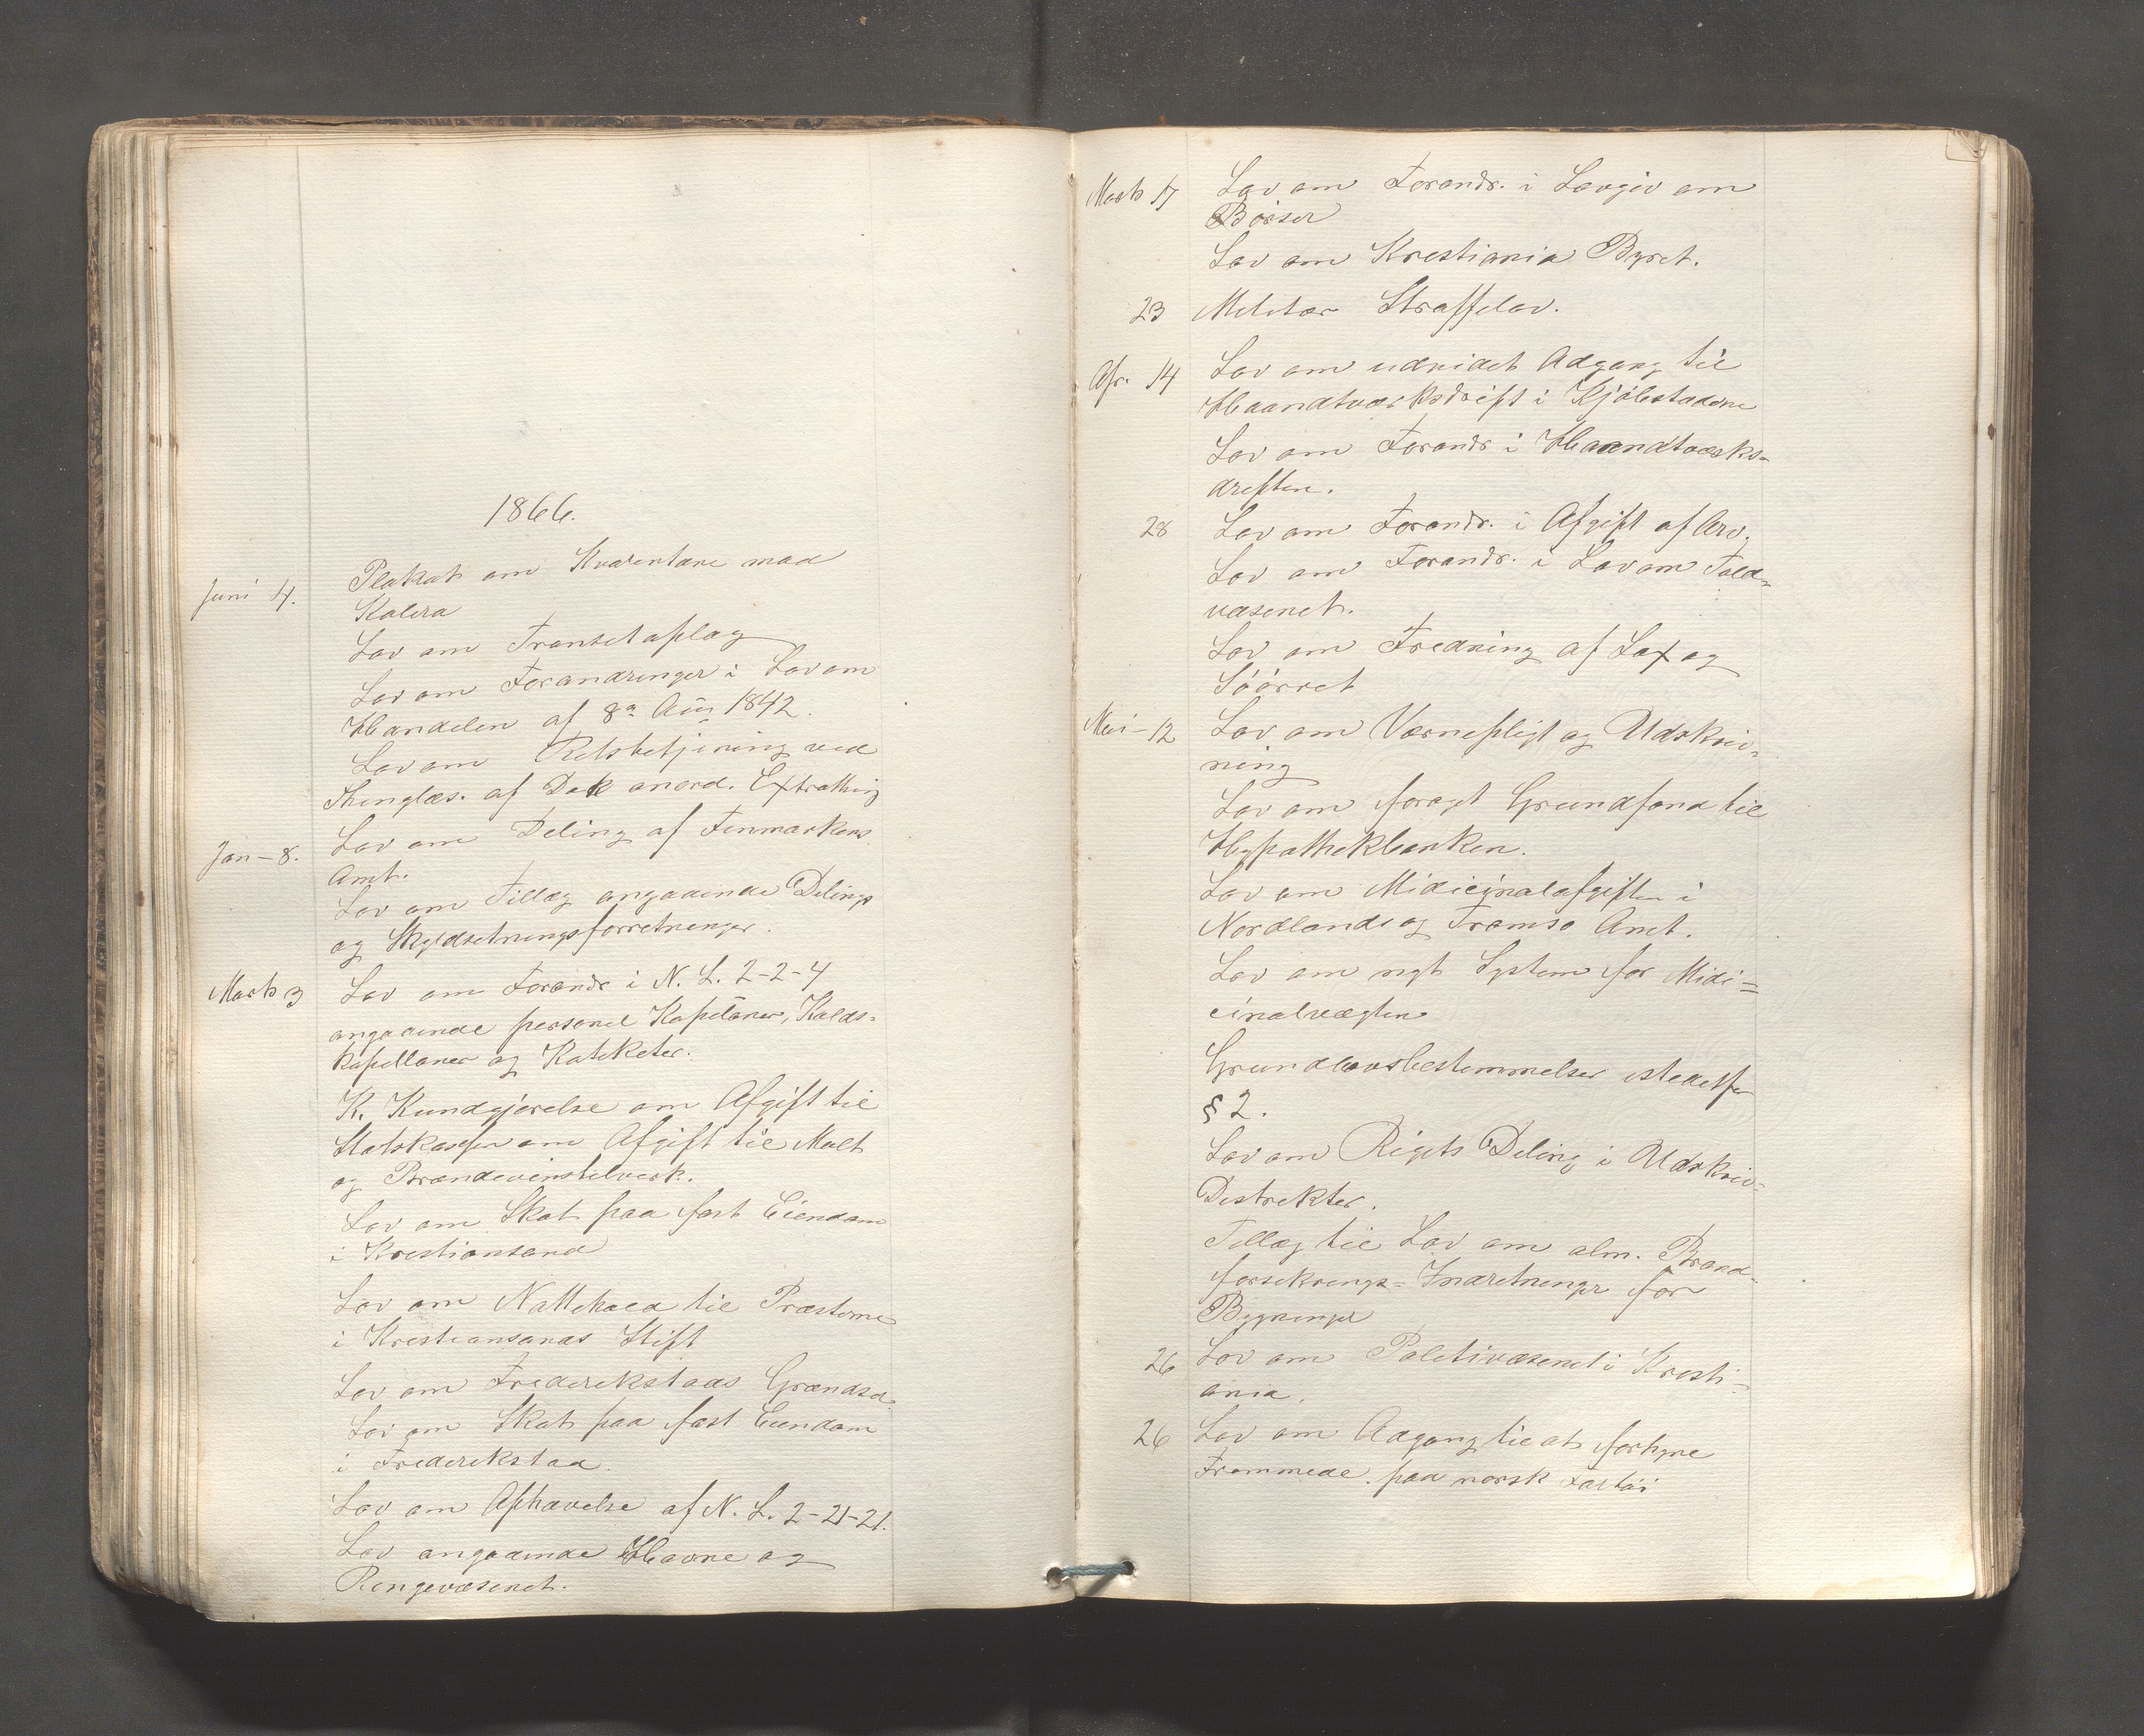 1866.
Juni 4. Plakat om Kvarentæne mod
Kolera
Lov om Transitoplag
Lov om Forandringer i Lov om
Handelen af 8de Aug 1842.
Lov om Retsbetjening ved
Thinglæs. af Dok anord. Extrathing
Jan – 8. Lov om Deling af Finmarkens
Amt.
Lov om Tillæg angaaende Delings
og Skyldsetningsforretninger.
Marts 3 Lov om Forandr i N. L. 2-2-4
angaaende personel Kapelaner, Kalds-
kapellaner og Kateketer.
K. Kundgjørelse om Afgift til
Statskassen om Afgift til Malt
og Brændevinstilverk.
Lov om Skat paa fast Eiendom
i Kristiansand
Lov om Nattehold til Præsterne
i Kristiansands Stift
Lov om Frederikstads Grændse
Lov om Skat paa fast Eiendom
i Frederikstad
Lov om Ophævelse af N. L. 2-21-21.
Lov angaaende Havne og
Ringevæsenet.
Marts 17 Lov om Forandr. i Lovgiv om
Börser
Lov om Kristiania Byret.
23 Militær Straffelov.
Apr. 14 Lov om udvidet Adgang til
Haandtværksdrift i Kjöbstæderne
Lov om Forandr i Haandtværks-
driften.
28 Lov om Forandr. i Afgift af Arv.
Lov om Forandr. i Lov om Told-
væsenet.
Lov om Fredning af Lax og
Söörret
Mai – 12 Lov om Værnepligt og Udskriv-
ning
Lov om foröget Grundfond til
Hypothekbanken.
Lov om Midicinalafgiften i
Nordlands og Tromsø Amt.
Lov om nyt System for Midi=
cinalvægten
Grundlovsbestemmelser istedetfor
§ 2.
Lov om Rigets Deling i Udskriv-
Distrikter.
Tillæg til Lov om alm. Brand-
forsikrings=Indretninger for
Bygninger
26 Lov om Politivæsenet i Kristi-
ania.
26 Lov om Adgang til at forhyre
Fremmede paa norsk Fartöi